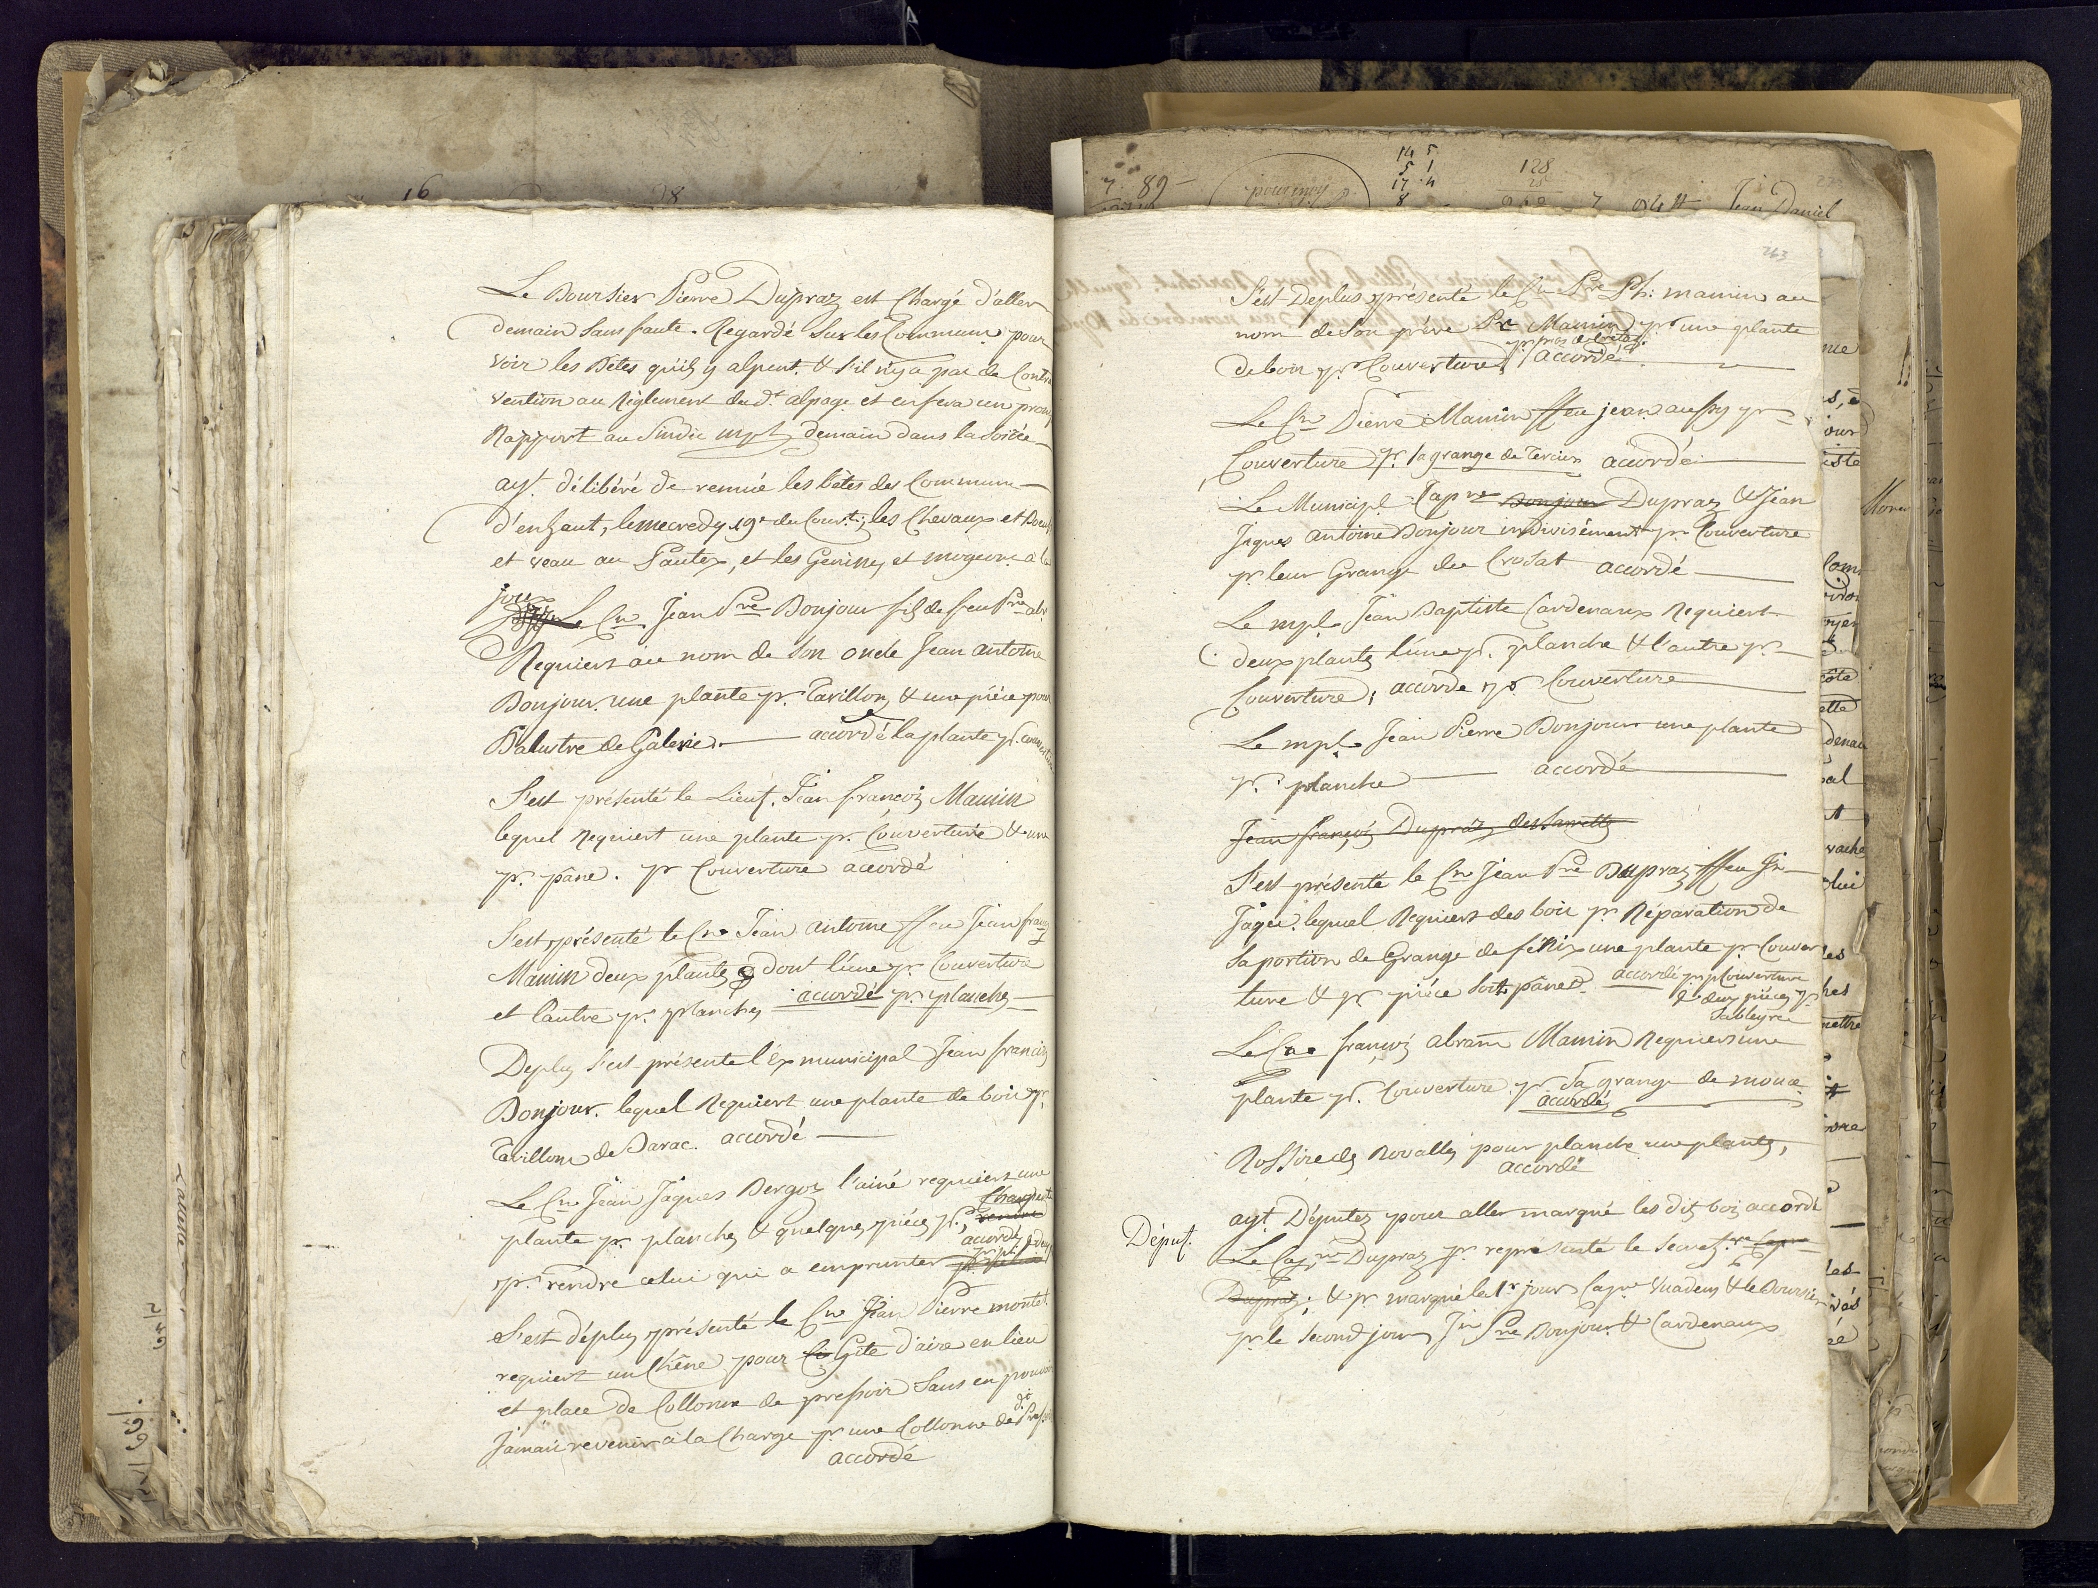 Le Boursier Pierre Dupraz est Chargé d'aller
demain sans faute. Regardé sur les Commune pour
voir les Bêtes qu'ils y alpent. & s'il n'y a pas de Contra
vention au Règlement du dt. alpage et en fera un promp
Rapport au Sindic mpl demain dans la Soirée
ayt. délibéré de remué les bêtes des Commune
d'enhaut, le mecredy 19e du Court; les Chevaux et Boeufs
et veau au Pautex, et les Genisses et mogeons à la
joux
Le Cn Jean Pre Bonjour fils de feu Pre abr.
Requiers au nom de Son oncle Jean antoine
Bonjour. une plante pr. Tavillon, & une pièce pour
Balustre de Galerie. accordé la plante pr. couverture
S'est présenté le Lieut. Jean françois Mamin
lequel Requiert une plante pr. Couverture & une
pr. pâne. pr Couverture accordé
S'est présenté le Cn Jean antoine ffeu Jean franç
Mamin deux plantes dont l'une pr. Couverture
et l'autre pr. planches accordé pr. planches
Deplus s'est présente l'Ex municipal Jean françois
Bonjour. lequel Requiert une plante de bois pr.
Tavillons de Darac. accordé
Le Cn Jean Jaques Bergoz l'ainé requiers une
plante pr. planches & quelques pièces pr.
pr. rendre celui qui a emprunter
accordé
S'est déplus présenté le Cn Jean Pierre montet
requiert un Chêne pour Gîte d'aire en lieu
et place de Collonne de pressoir Sans en pouvoir
Jamais revenir à la Charge pr une Collonne de dit Press.
accordé
263
S'est Deplus présenté le Cn Pre Ph: mamin au
nom de Son frère Pre Mamin pr. une plante
de bois pr Couverture accordé
Le Cn Pierre Mamin ffeu jean aussy pr
Couverture pr. la grange de Tercier accordé
Le Municipl. Capne Bonjour Dupraz & Jean
Jaques antoine Bonjour indivisément pr Couverture
pr leur Grange du Crosat accordé
Le mpl Jean Baptiste Cardenaux Requiert
deux plantes l'une pr. planche & l'autre pr.
Couverture; accordé pr. Couverture
Le mpl Jean Pierre Bonjour une plante
pr. planche accordé
Jean françois Dupraz
S'est présenté le Cn Jean Pre Dupraz ffeu Jn
Jaques lequel Requiers des bois pr. Réparation de
Sa portion de Grange de feNix une plante pr. Couver
ture & pr pièce soit pânne accordé pr. Couverture
& deux pièces pr.
Sableyre
Le Cne françois abram Mamin Requiers une
plante pr. Couverture pr. Sa grange de mouce
accordé
Rossire des Novalles pour planche une plante,
accordé
ayt. Députez pour aller marqué les dits bois accordé
Députs.
Le Capne Dupraz pr. représenté le Secret.re
Dupraz; & pr marqué le 1r jour Capne vuadens & le Boursier
pr le Second jour, Jn Pre Bonjour & Cardenaux
Jean Daniel
128